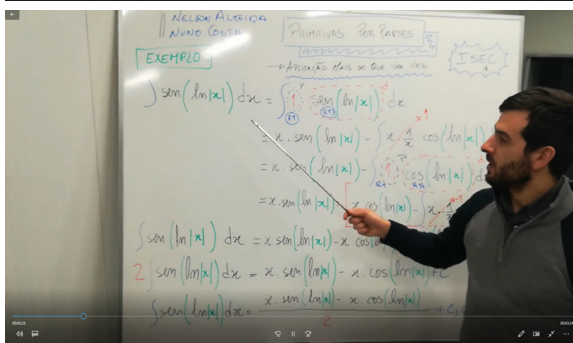 NELSON ALMEIDA
NUNO COSTA
PRIMITIVAS POR PARTES
→ APLICAÇÃO MAIS DO QUE UMA VEZ
ISEC
EXEMPLO
∫ sen(ln|x|) dx = ∫ 1 sen(ln|x|) dx
= x · sen(ln|x|) - ∫ x · 1/x cos(ln|x|)
= x · sen(ln|x|) - ∫ 1 cos(ln|x|) d
= x · sen(ln|x|) - [x cos(ln|x|) - ∫ x · 1/x
∫ sen(ln|x|) dx = x sen(ln|x|) - x cos(
2 ∫ sen(ln|x|) dx = x sen(ln|x|) - x cos(ln|x|) + C
∫ sen(ln|x|) dx = x sen(ln|x|) - x cos(ln|x|) / 2 +